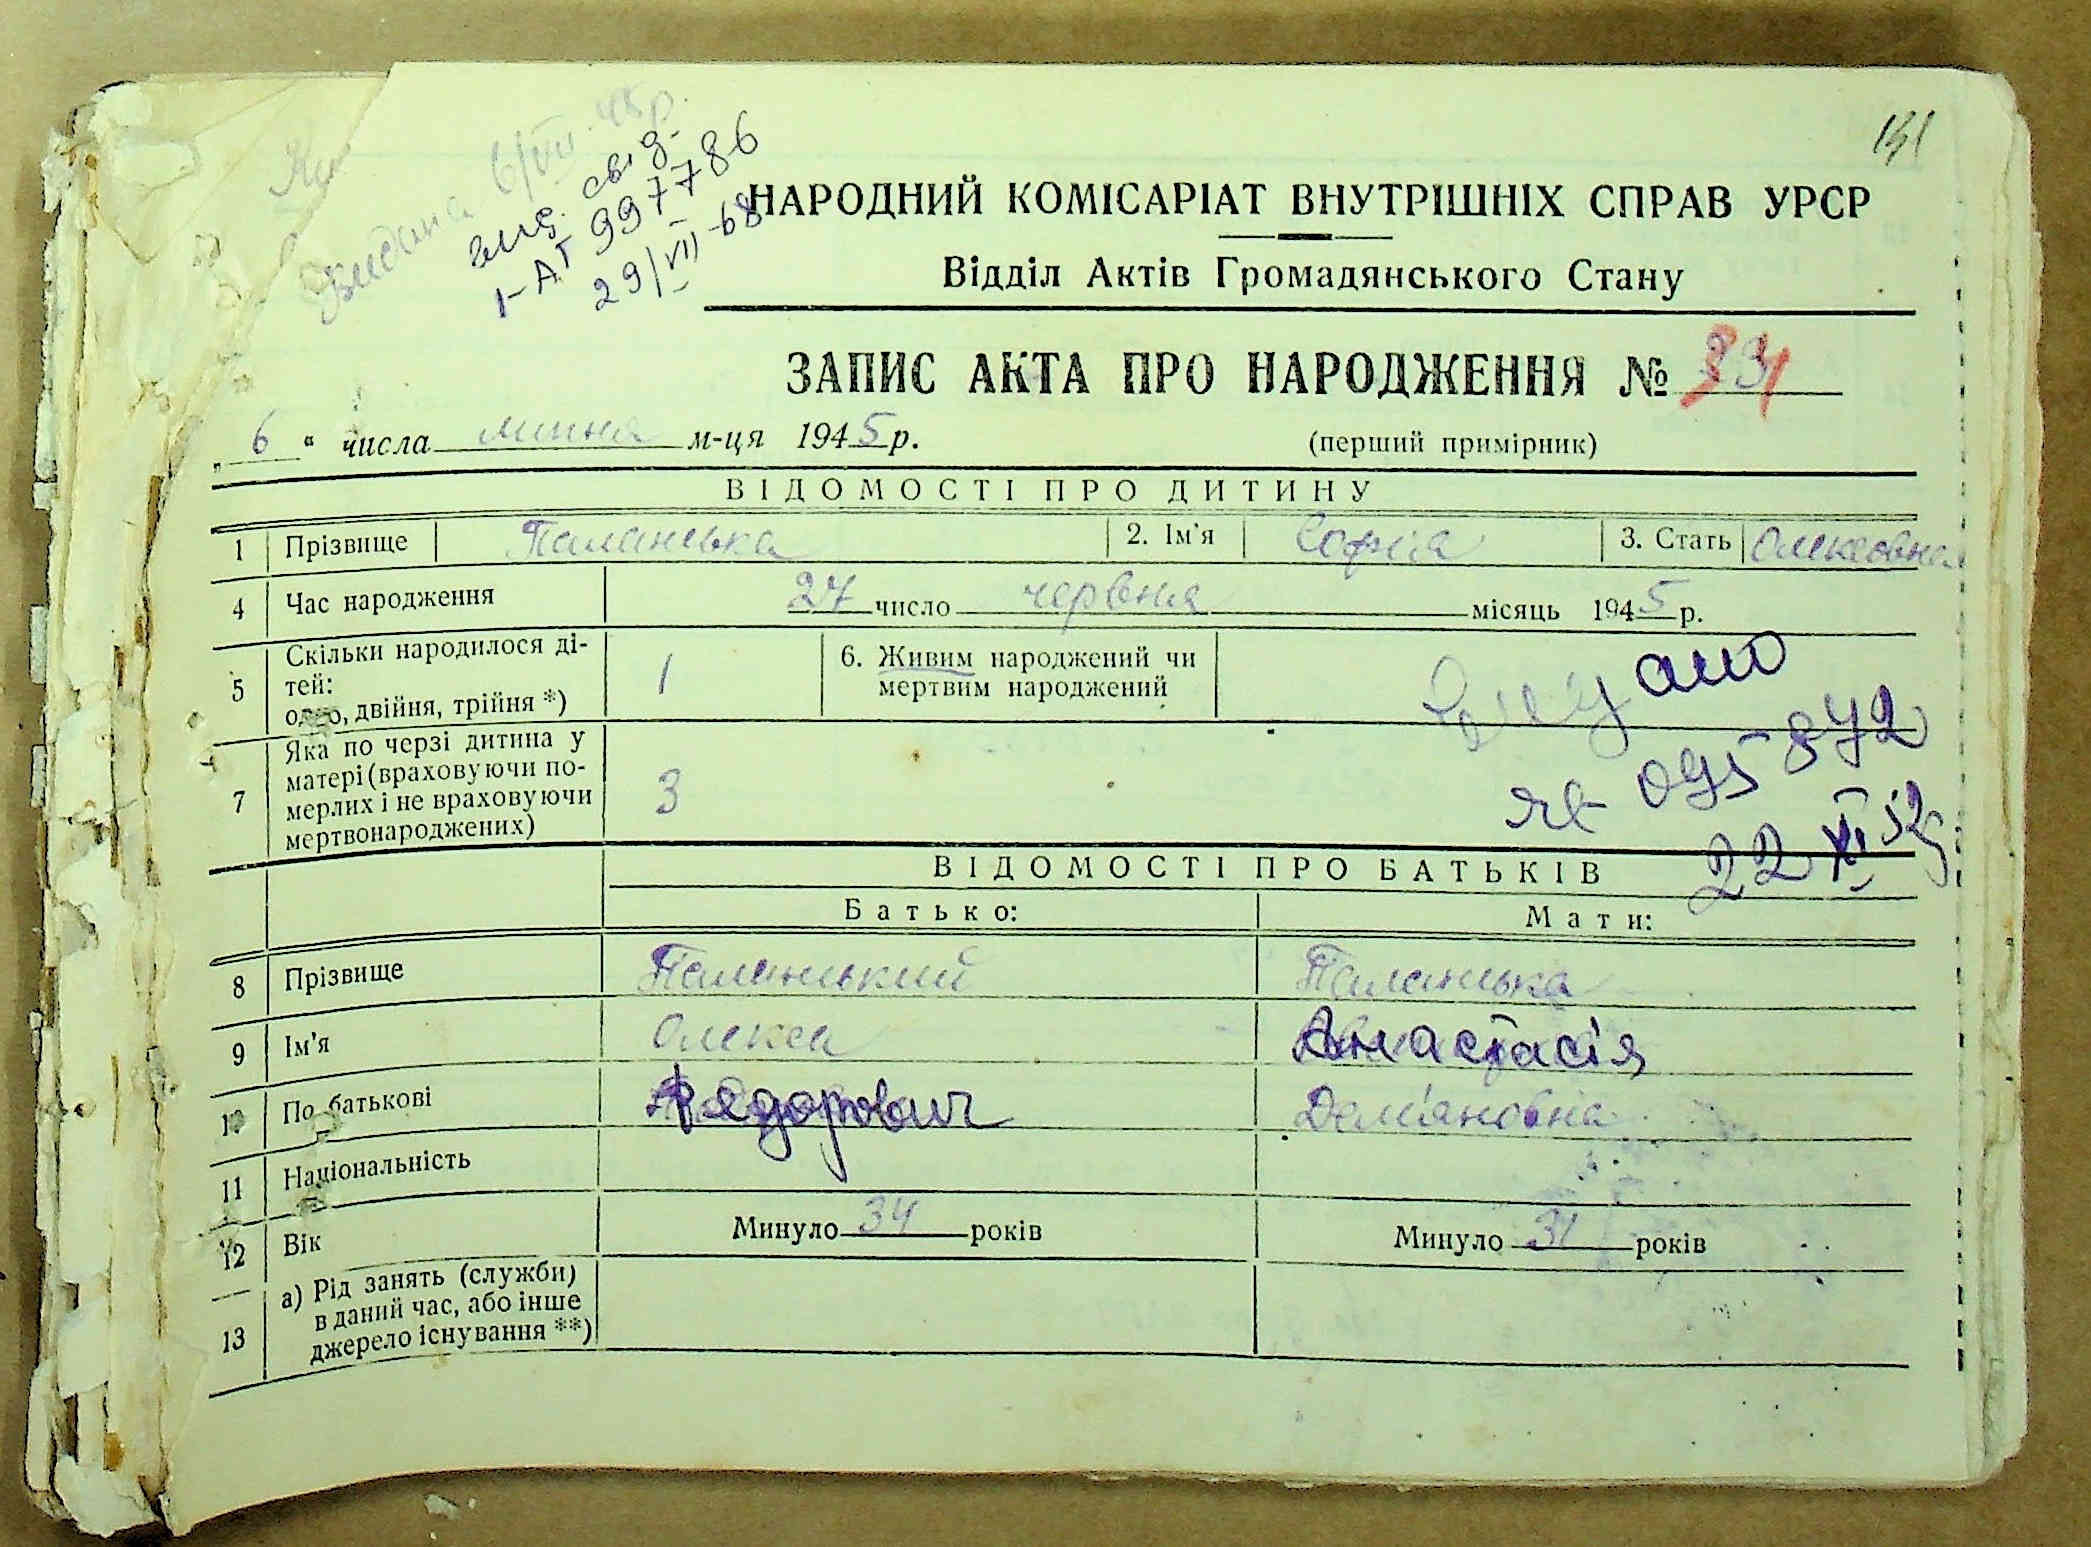 131
Видана 6/VII 45р.
вид. свід.
І-АТ 997786
29/VII-68
НАРОДНИЙ КОМІСАРІАТ ВНУТРІШНІХ СПРАВ УРСР
Відділ Актів Громадянського Стану
ЗАПИС АКТА ПРО НАРОДЖЕННЯ №
„ 6 “ числа липня м-ця 1945 р. (перший примірник)
ВІДОМОСТІ ПРО ДИТИНУ
1 Прізвище Паланська 2. Ім'я Софія 3. Стать Олексовна
4 Час народження 27 число червня місяць 1945 р.
5 Скільки народилося ді-
тей:
одно, двійня, трійня *) 1 6. Живим народжений чи
мертвим народжений
7 Яка по черзі дитина у
матері (враховуючи по-
мерлих і не враховуючи
мертвонароджених) 3
ЯБ 095872
22 XI 52р
ВІДОМОСТІ ПРО БАТЬКІВ
Батько: Мати:
8 Прізвище Паланський Паланська
9 Ім'я Олекса Анастасія
10 По батькові Федорович Дем'яновна
11 Національність
12 Вік Минуло 34 років Минуло 31 років
13 а) Рід занять (служби)
в даний час, або інше
джерело існування **)